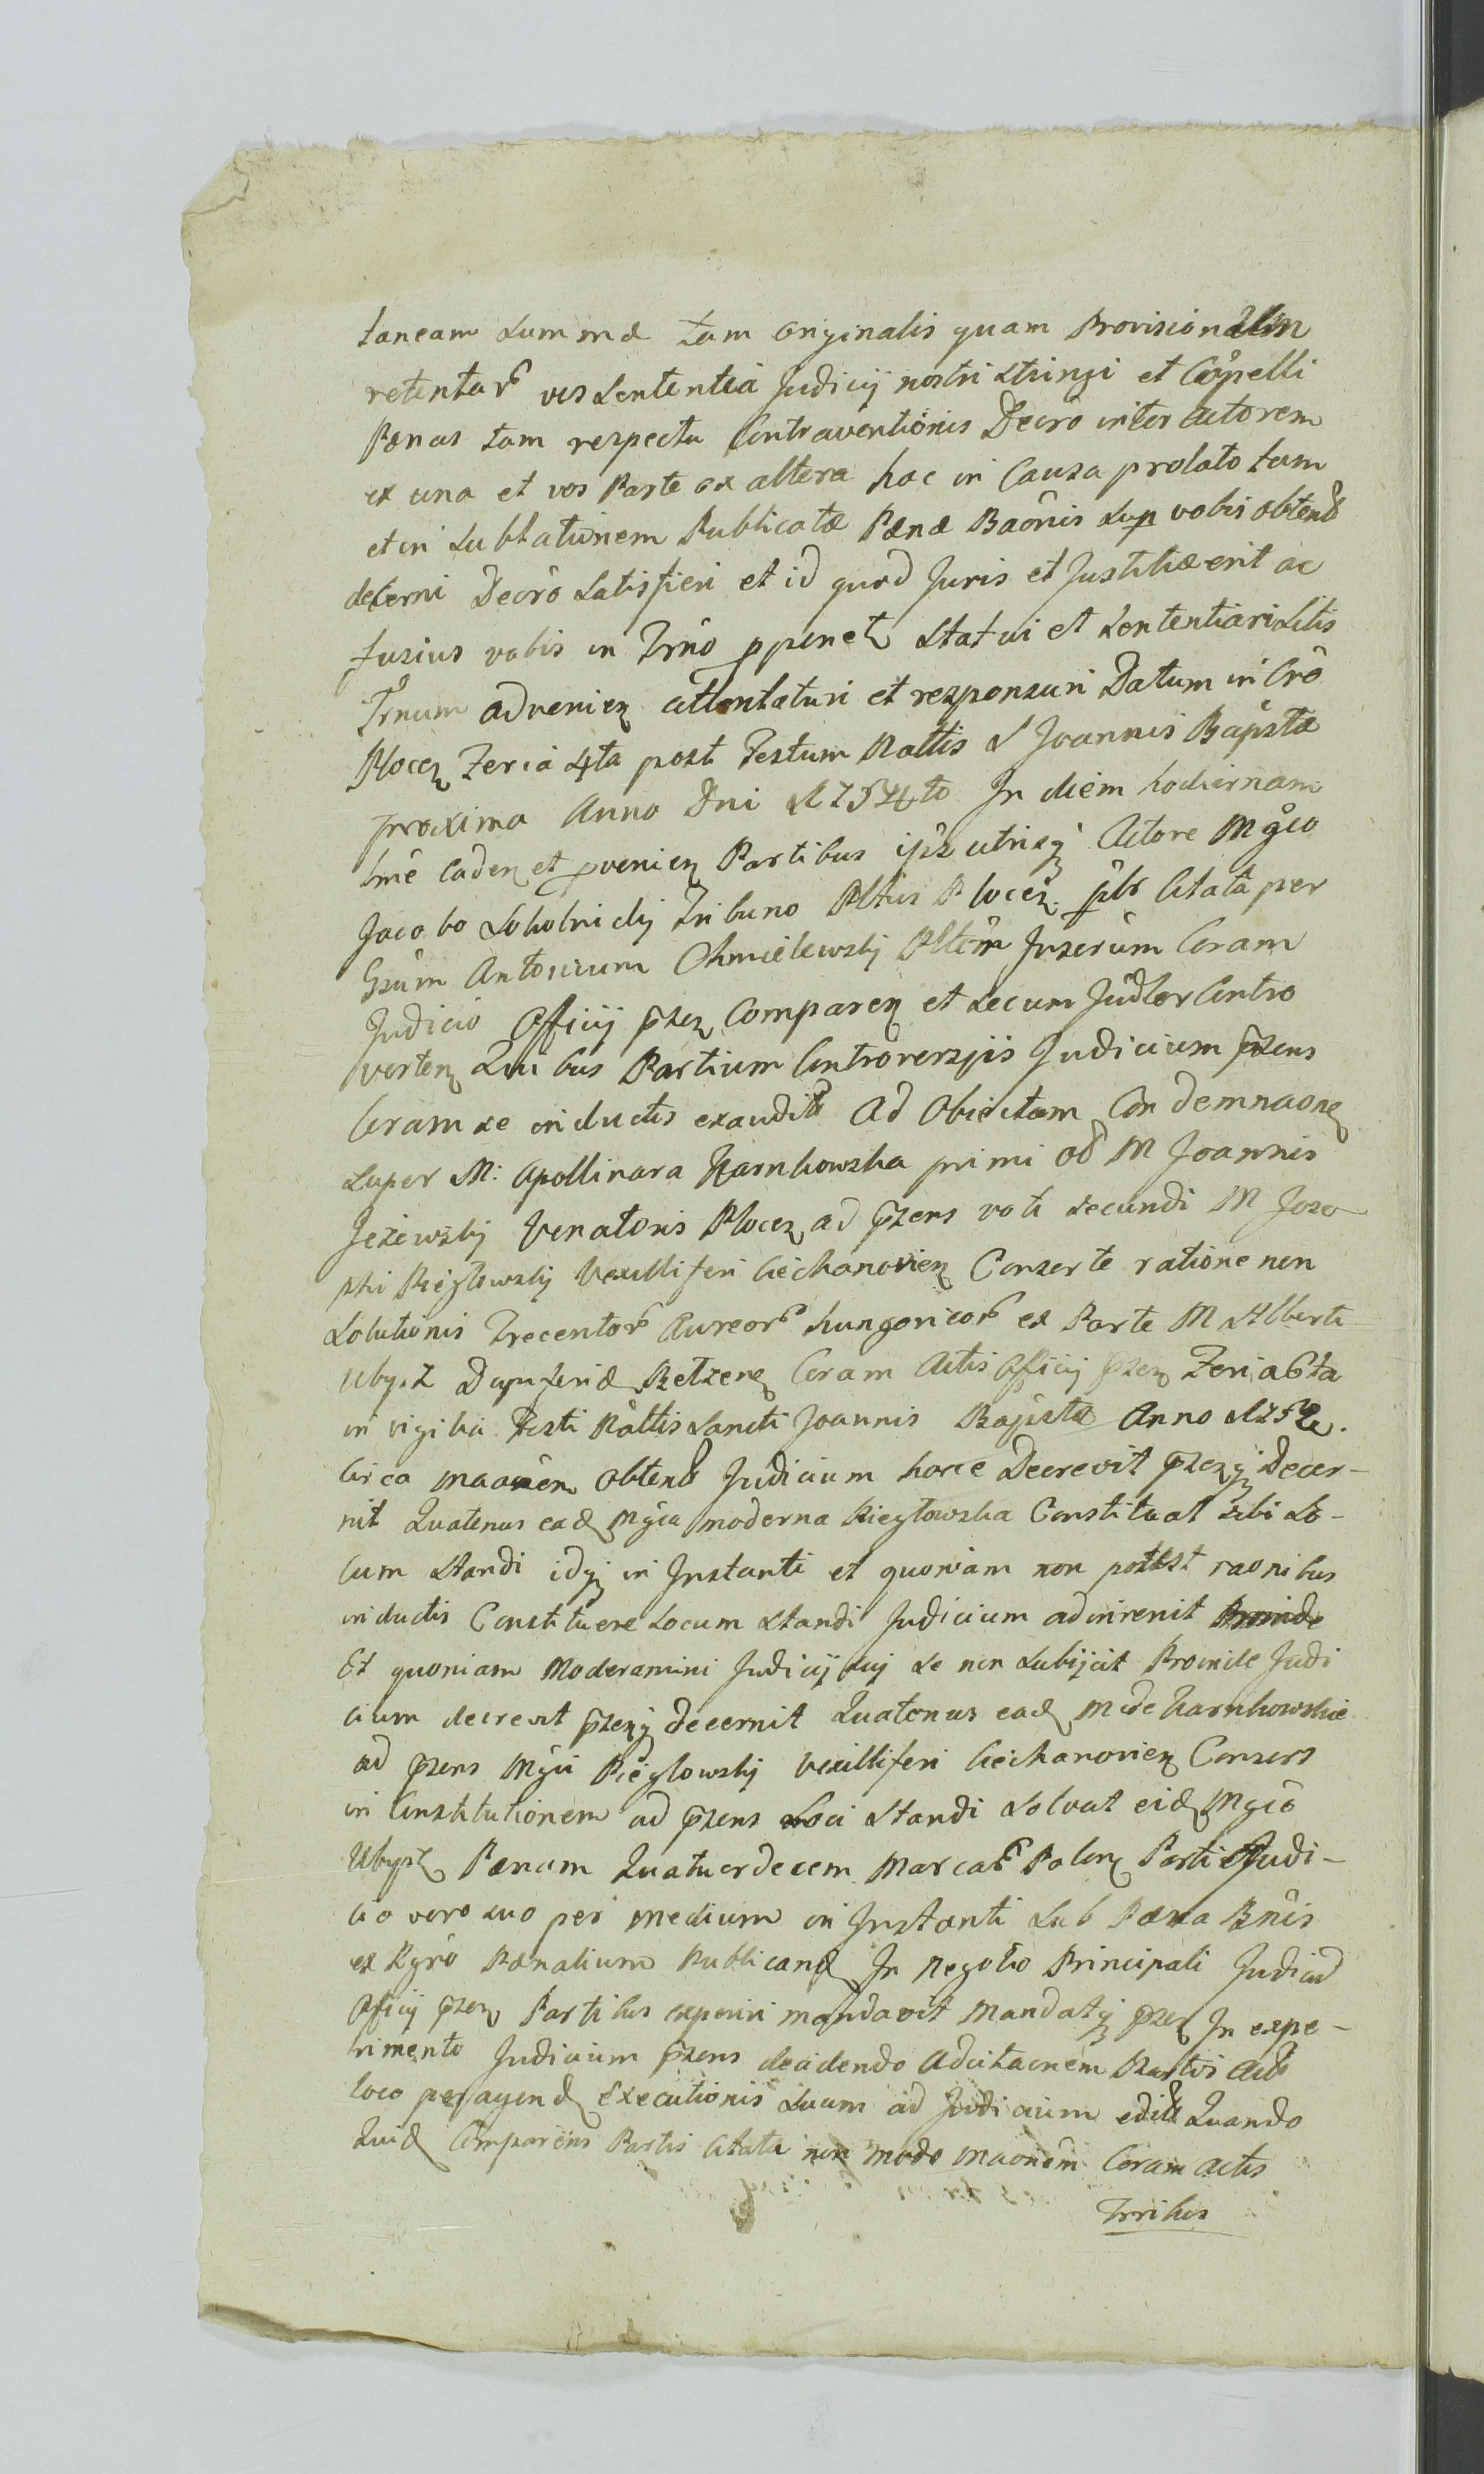 taneam Summæ tam originalis quam Provisionalem
retentar vos Sententia Judicij nostri stringi et Compelli
Pænas tam respectu Contraventionis Decro inter Actorem
ex una et vos Parte ex altera hac in Causa prolato tam
et in Sublationem Publicatæ Pænæ Baonis sup vobis obtent
decerni Decro Satisfieri et id quod Juris et Justitiæ erit ac
fusius vobis in Trno pponet Statui et Sententiari Litis
Trnum advenien attentaturi et responsuri Datum in Cro
Plocen Feria 4ta post Festum Nattis S Joannis Bapstæ
proxima Anno Dni 1754to In diem hodiernam
lme caden et pvenien Partibus ips utrisq Actore Mgco
Jacobo Sokolnicky Tribuno Pltus Plocen. Citata per
Gsum Antonium Chmielewsky Pltem Jnserum Coram
Judicio Officij przen Comparen et Secum Judler Contro
verten Quibus Partium Controversijs Judicium przens
Coram se inductis exaudit Ad Obiectam Condemnaone
Super M: Apollinara Karnkowska primi M Joannis
Jezewsky Venatoris Plocen ad przens voti secundi M Jose
phi Pieglowsky Vexilliferi Ciechanovien Conserte ratione non
Solutionis Trecentor Aureor hungaricor ex Parte M Alberti
Ubysz Dapiferid Belzen Coram Actis Officij przen Feria 6ta
in vigilia Festi Nattis Sancti Joannis Bapista Anno
Circa maonem obtent Judicium hocce Decrevit przenq Decer-
nit Quatenus ead Mgca moderna Pieglowska Constituat sibi Lo-
cum Standi idq in Instanti et quoniam non potest raonibus
inductis Constituere Locum Standi Judicium adinvenit
Et quoniam Moderamini Judicij sui se non Subijcit Proinde Judi
cium decrevit przenq decernit Quatenus ead Mcde Karnkowskie
ad przens Mgci Pieglowsky Vexilliferi Ciechanovien Consors
in Constitutionem ad przens Loci Standi Solvat eid Mgco
Ubysz Pænam Quatuordecem Marcar Polon Parti Judi-
cio vero suo per medium in Instanti Sub Pæna Bnis
ex Rgro Pænalium Publicand In Negotio Principali Judiciu
Officij przen Partibus experiri mandavit Mandatq przen In expe-
rimento Judicium przens decidendo Adcitaonem Partis
loco peragend Executionis Suam ad Judicium edit Quando
Quid Comparens Partis Citata non modo maonem Coram Actis